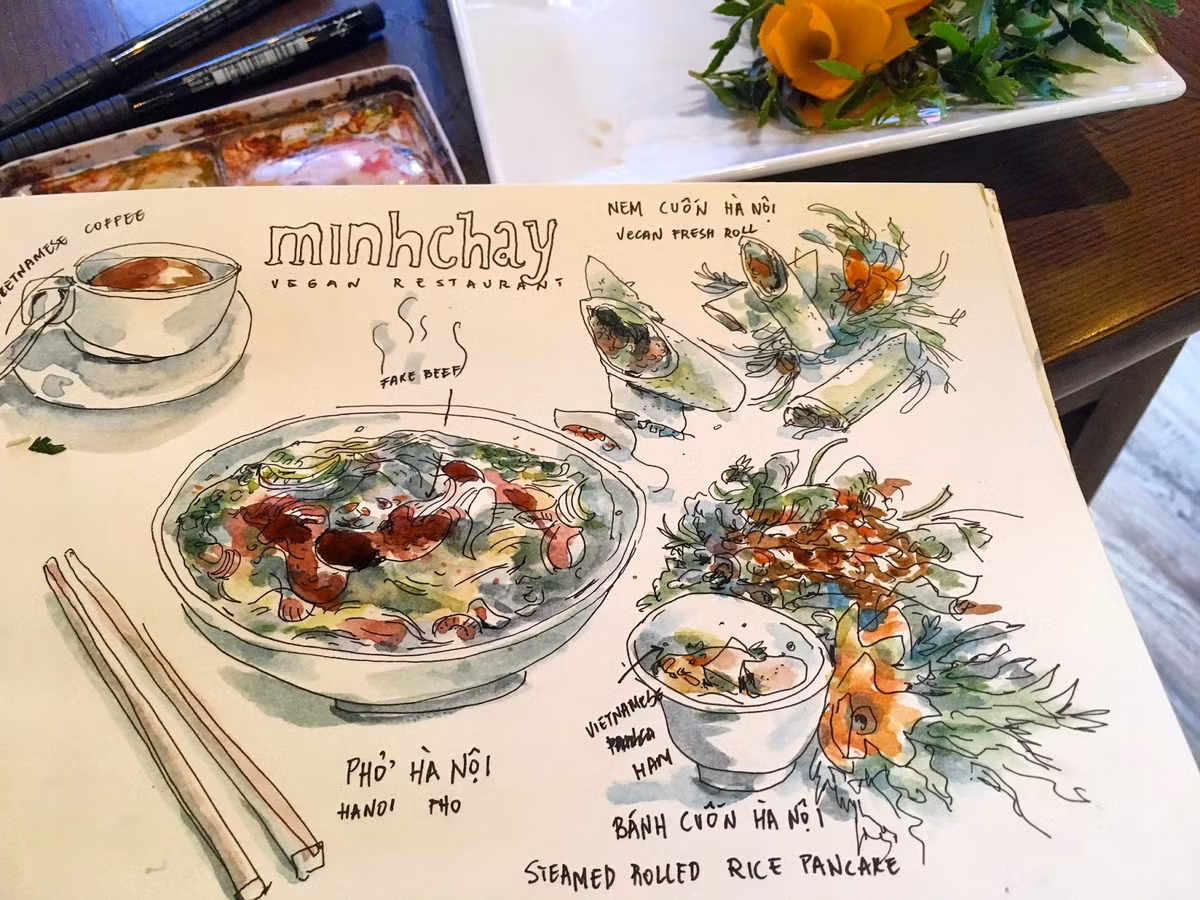 VIETNAMESE COFFEE
minhchay
VEGAN RESTAURANT
NEM CUỐN HÀ NỘI
VEGAN FRESH ROLL
FAKE BEEF
VIETNAMESE
HAM
PHỞ HÀ NỘI
HANOI PHO
BÁNH CUỐN HÀ NỘI
STEAMED ROLLED RICE PANCAKE